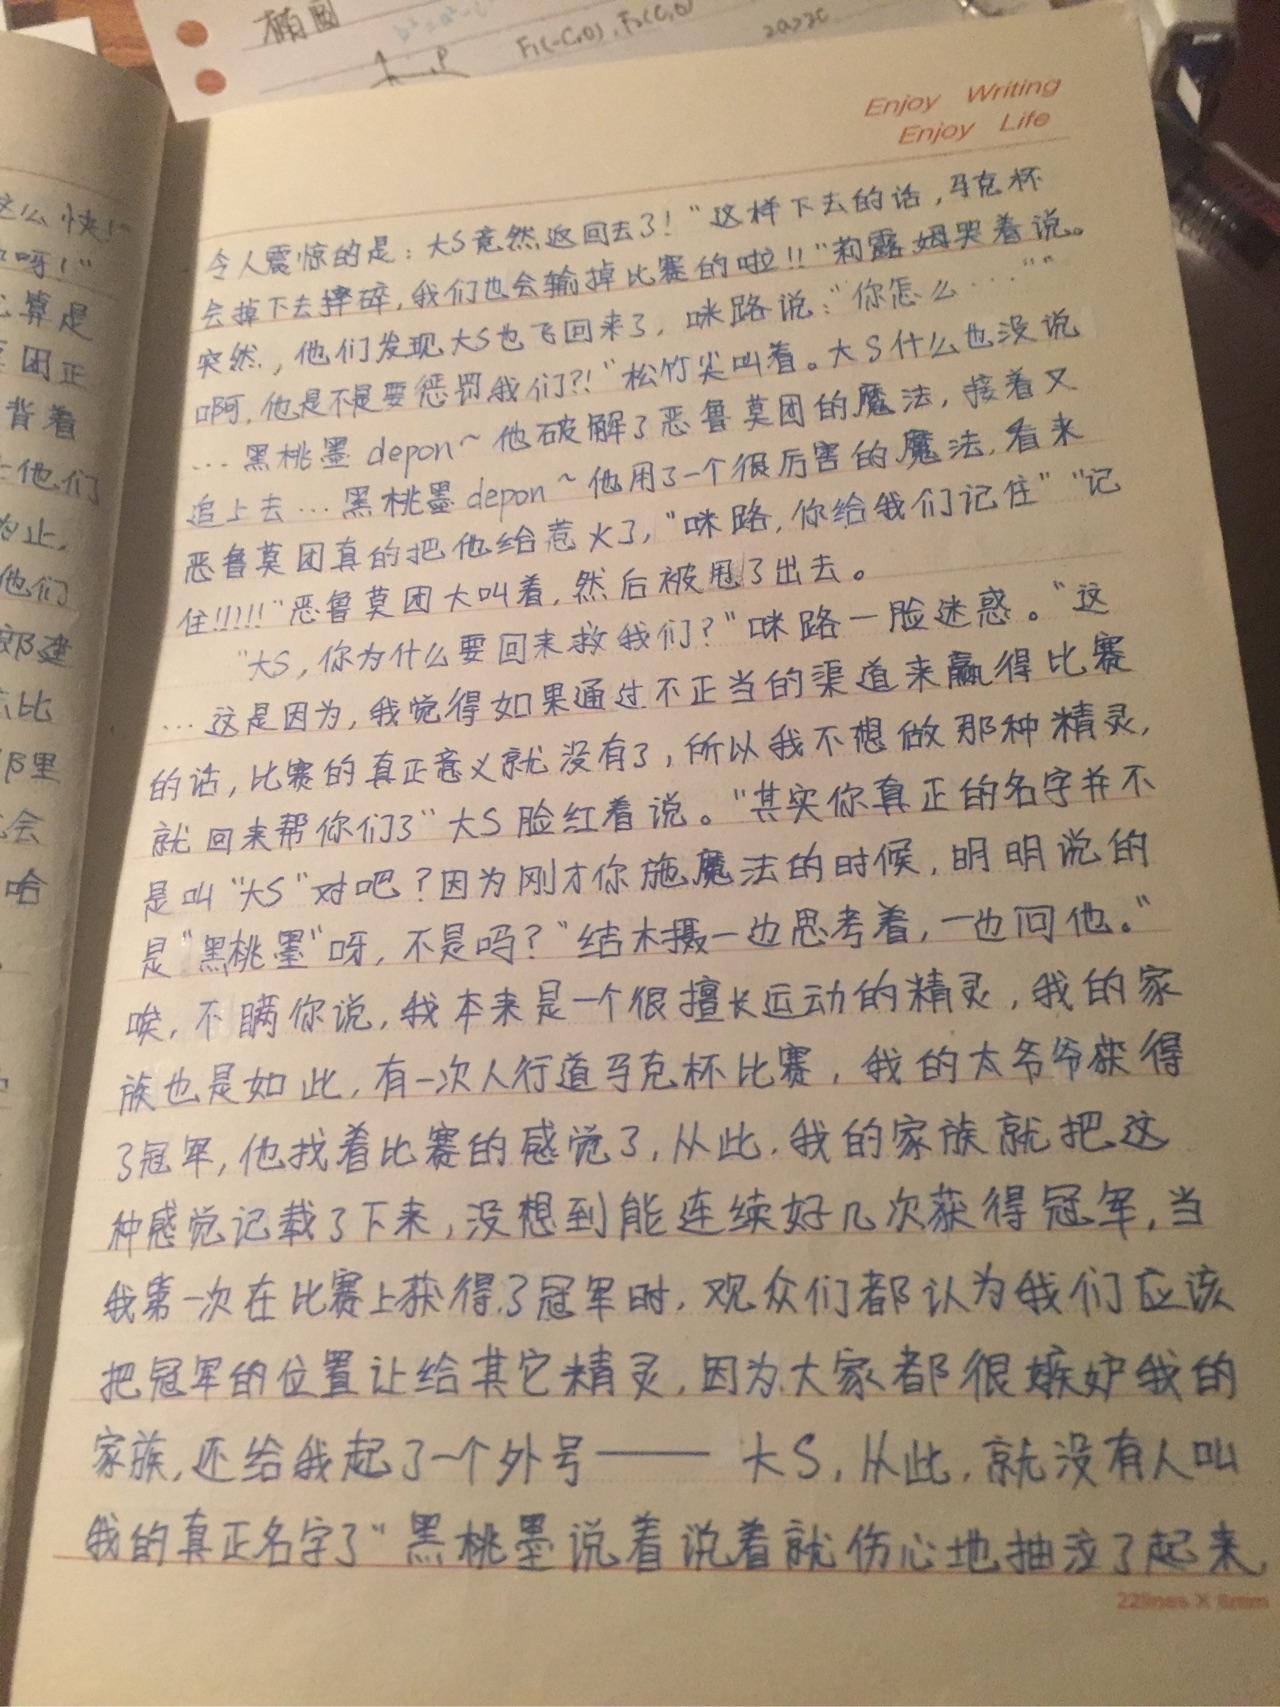 椭圆
F₁(-C,0), F₂(C,0)
2a>2c
P
Enjoy Writing
Enjoy Life
这么快！"
呀！"
算是
团正
背着
他们
为止,
他们
比
那里
会
哈
令人震惊的是：大S竟然返回去了！"这样下去的话，马克杯
会掉下去摔碎，我们也会输掉比赛的啦!!"莉露姆哭着说。
突然，他们发现大S也飞回来了，咪路说："你怎么…""
啊，他是不是要惩罚我们?!"松竹尖叫着。大S什么也没说
…黑桃墨depon~他破解了恶鲁莫团的魔法，接着又
追上去…黑桃墨depon~他用了一个很厉害的魔法，看来
恶鲁莫团真的把他给惹火了，"咪路，你给我们记住""记
住!!!!!"恶鲁莫团大叫着，然后被甩了出去。
"大S，你为什么要回来救我们？"咪路一脸迷惑。"这
…这是因为，我觉得如果通过不正当的渠道来赢得比赛
的话，比赛的真正意义就没有了，所以我不想做那种精灵，
就回来帮你们了"大S脸红着说。"其实你真正的名字并不
是叫"大S"对吧？因为刚才你施魔法的时候，明明说的
是"黑桃墨"呀，不是吗？"结木摄一边思考着，一边问他。"
唉，不瞒你说，我本来是一个很擅长运动的精灵，我的家
族也是如此，有一次人行道马克杯比赛，我的太爷爷获得
了冠军，他找着比赛的感觉了，从此，我的家族就把这
种感觉记载了下来，没想到能连续好几次获得冠军，当
我第一次在比赛上获得了冠军时，观众们都认为我们应该
把冠军的位置让给其它精灵，因为大家都很嫉妒我的
家族，还给我起了一个外号——大S，从此，就没有人叫
我的真正名字了"黑桃墨说着说着就伤心地抽泣了起来
22lines X 8mm